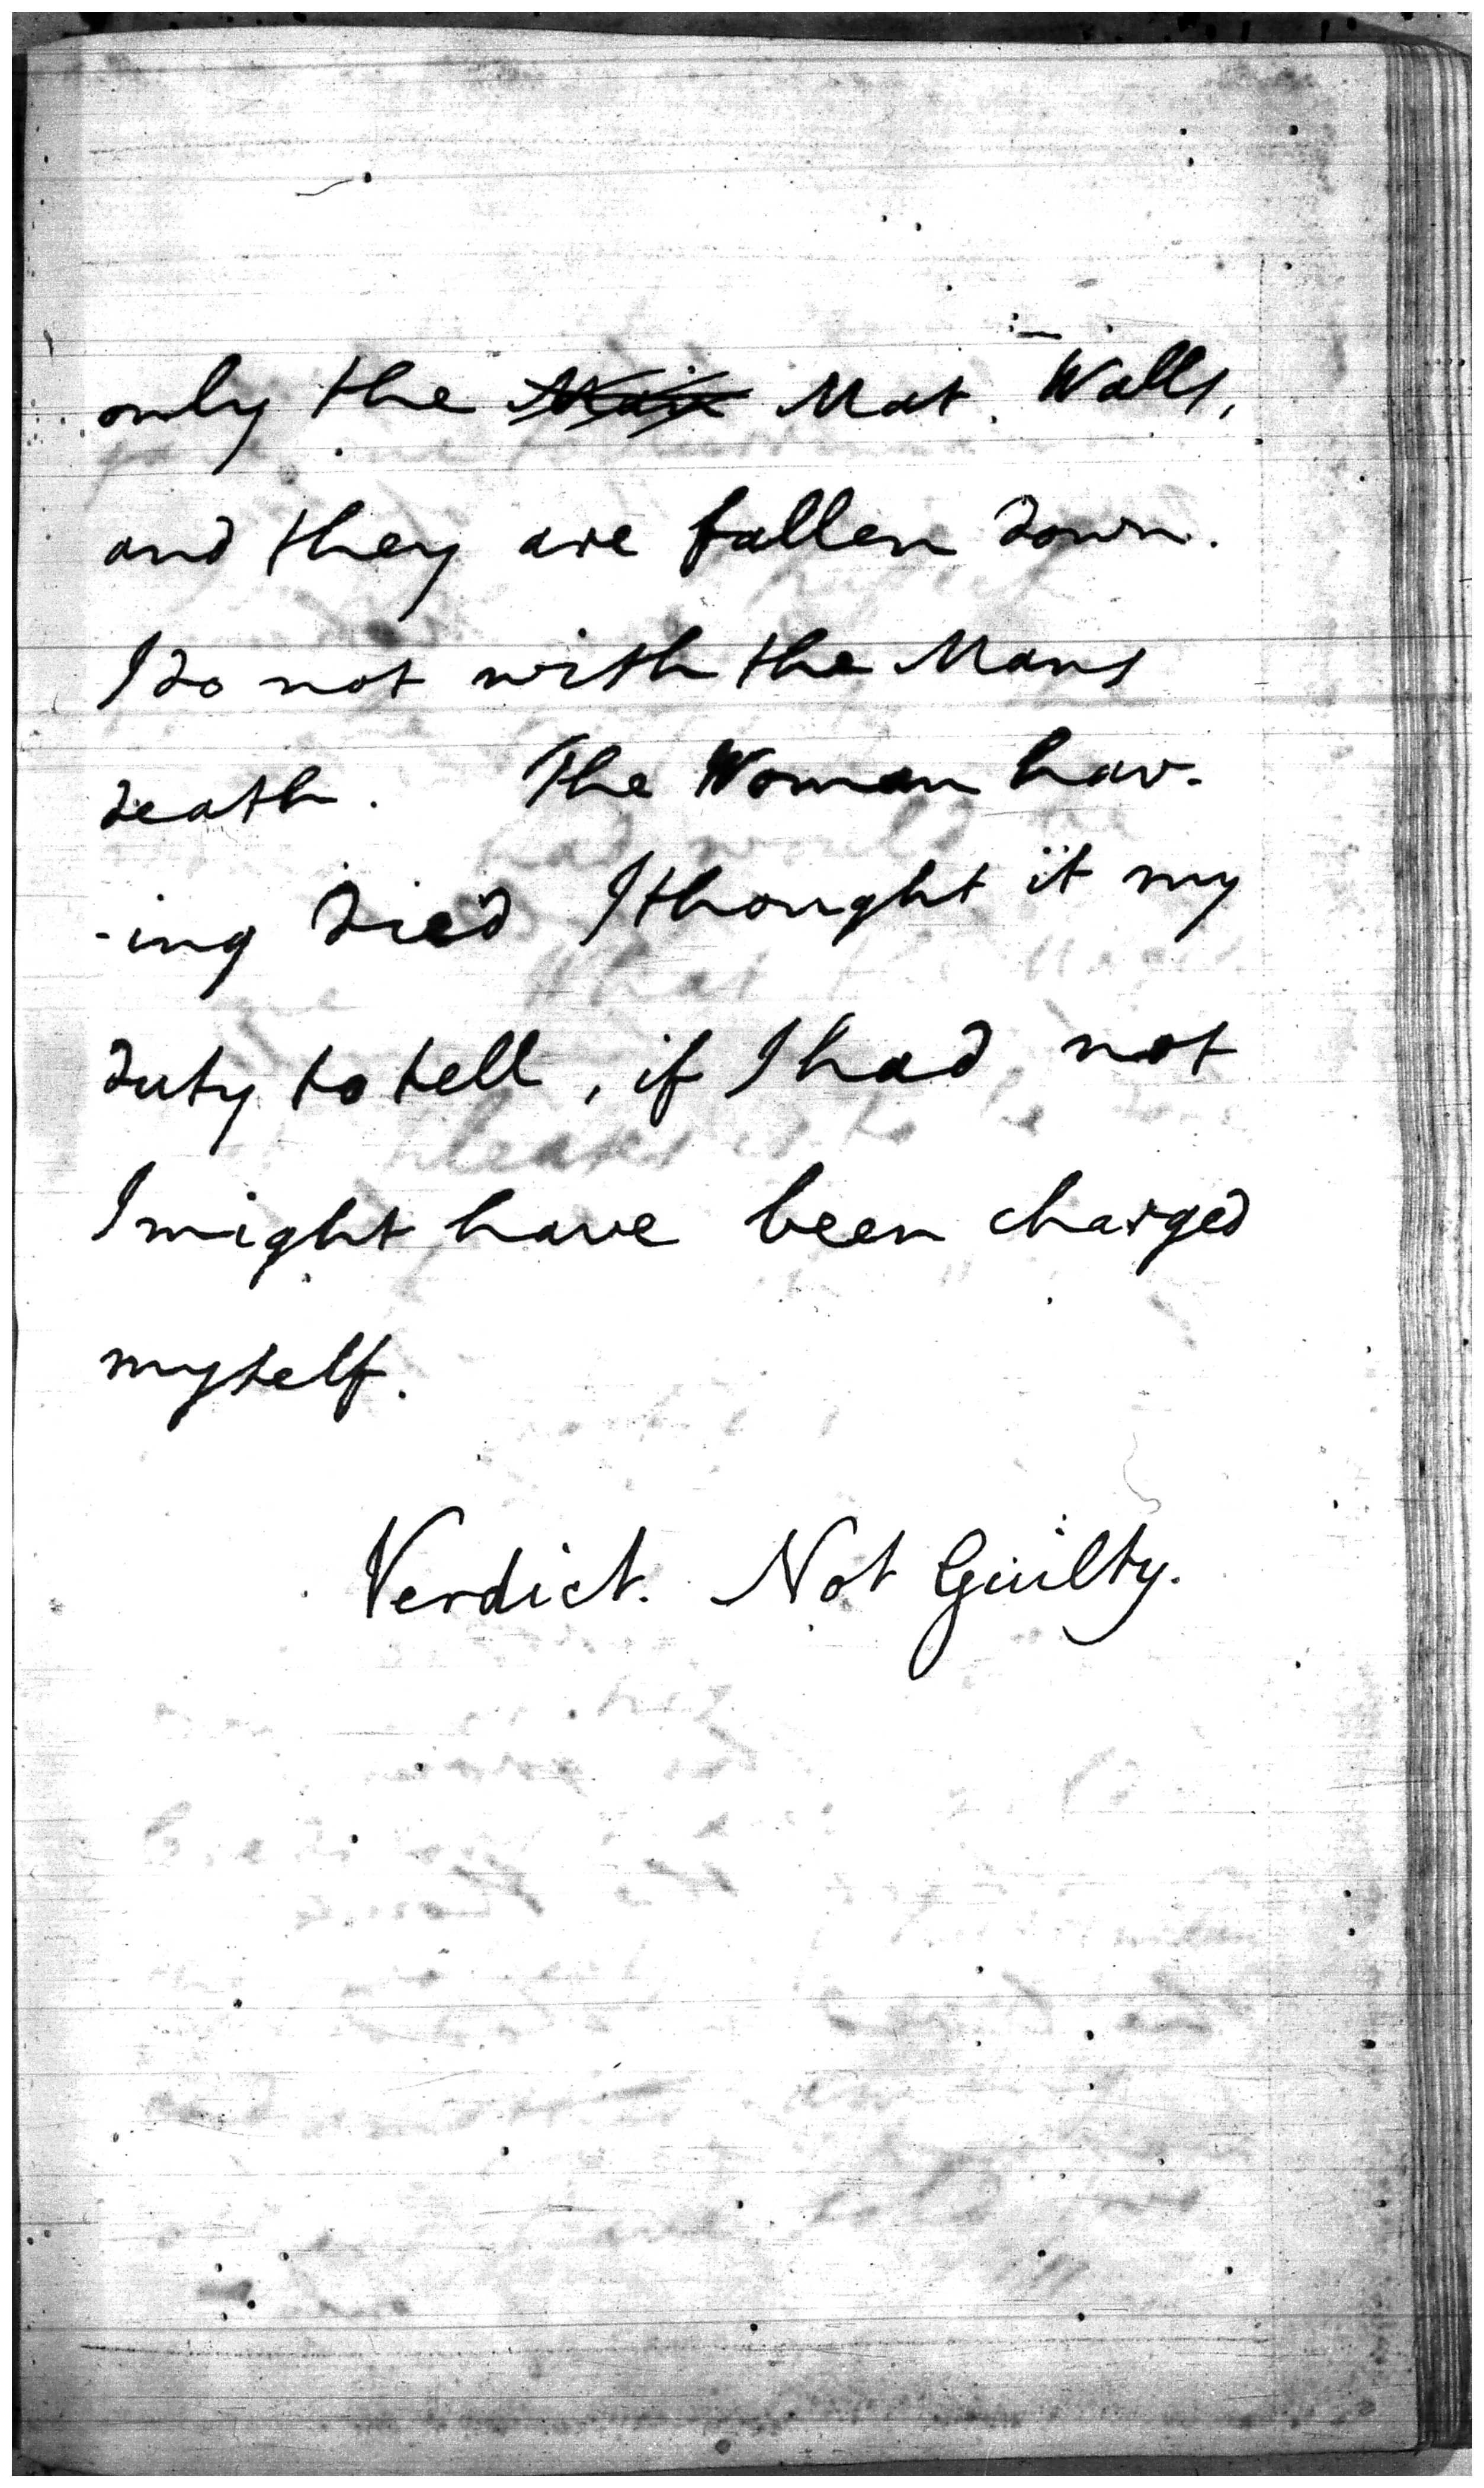 only the Mat Walls,
and they are fallen down.
I do not wish the Mans
death. The Woman hav-
-ing died I thought it my
duty to tell, if I had not
I might have been charged
myself.
Verdict. Not Guilty.